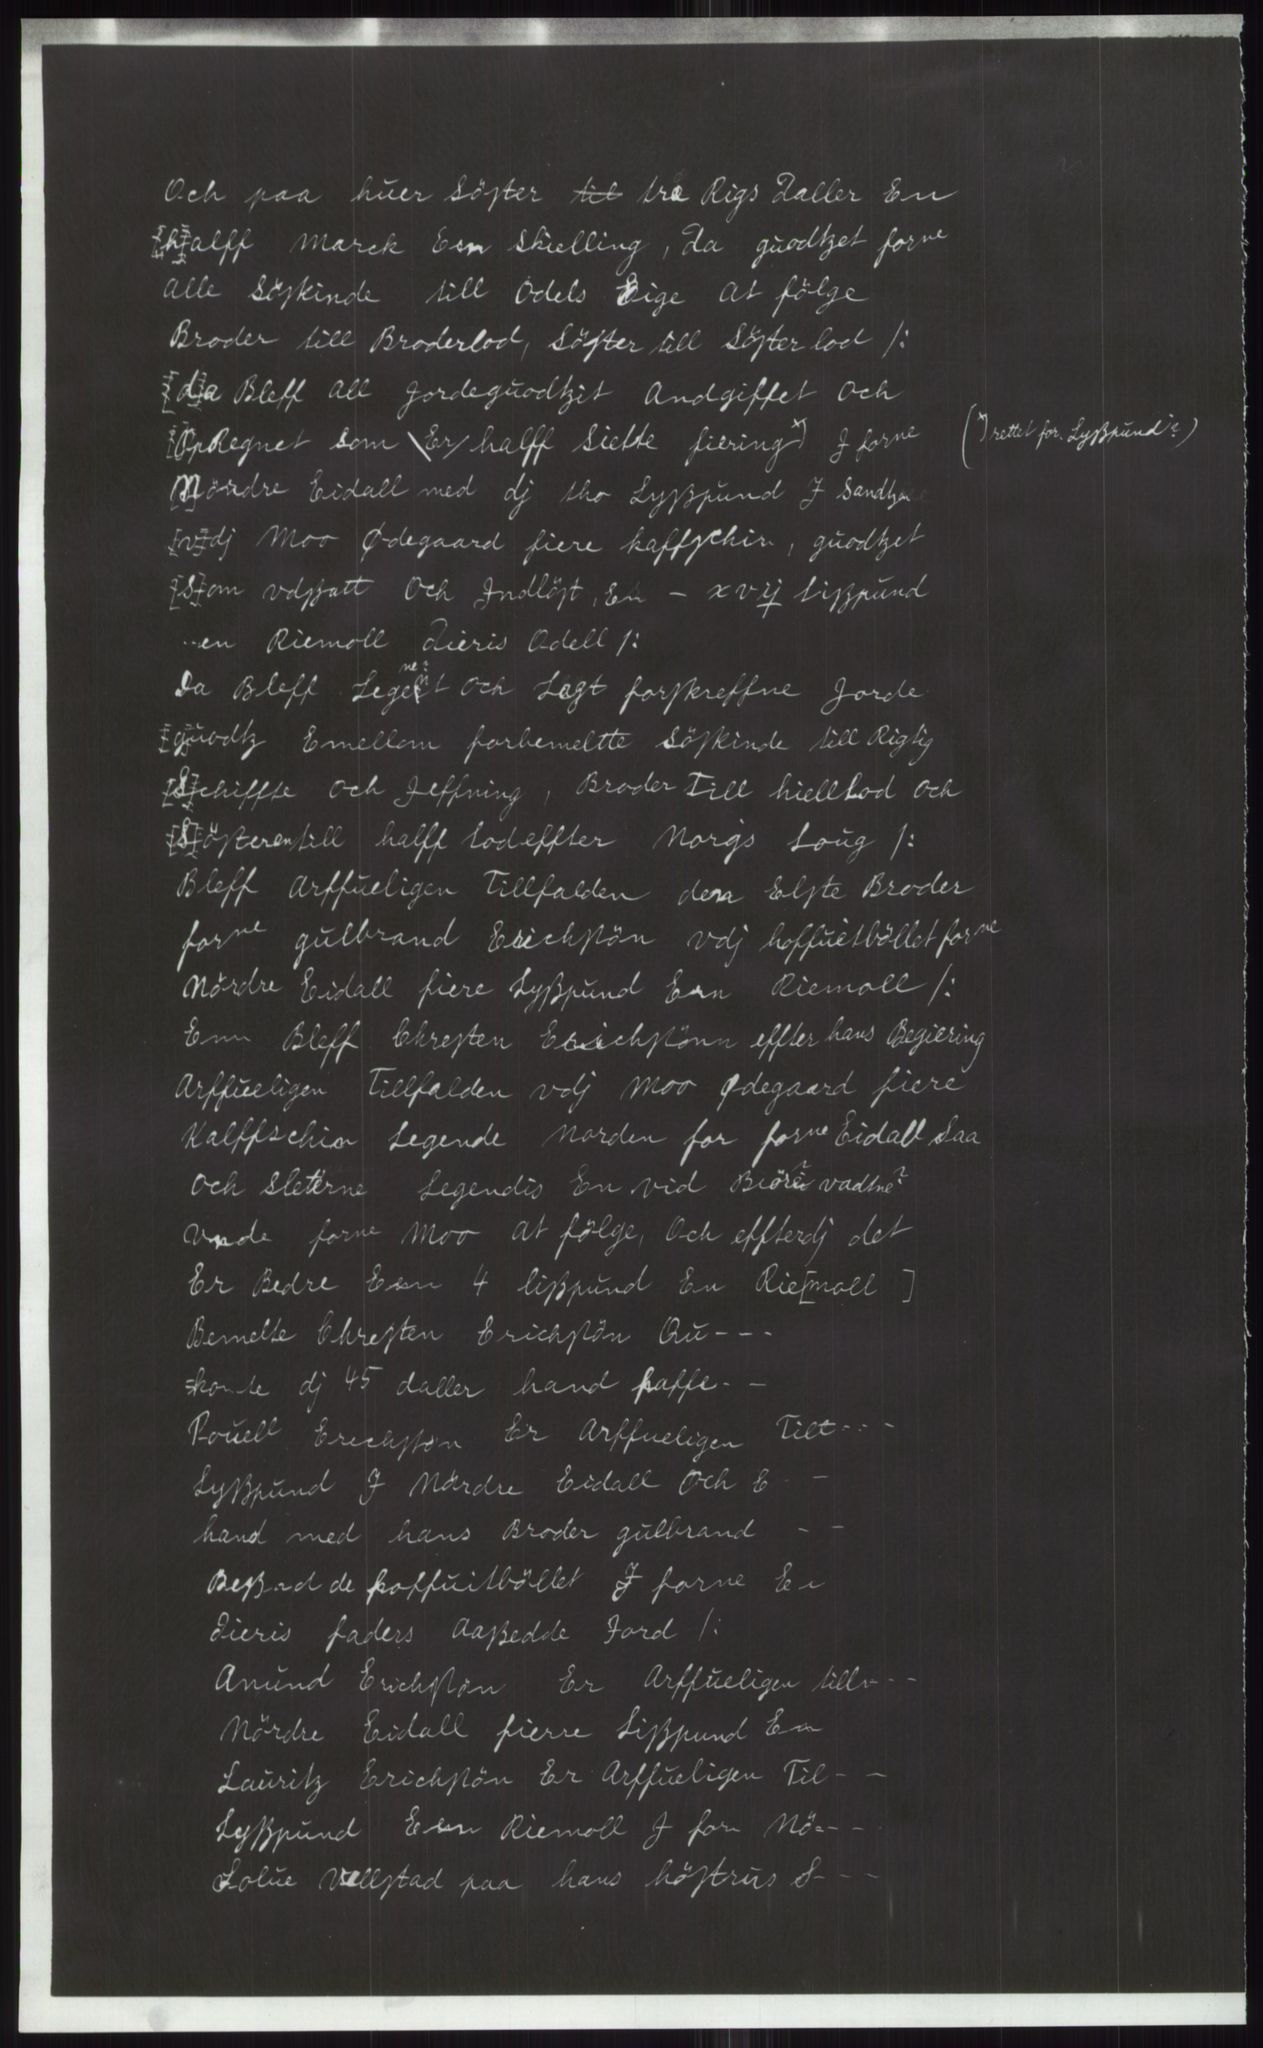 Och paa huer Söster til tre Rigs Daller En
[h]alff Marck Een Skielling, Da guodtzet forne
alle Söskinde till Odels Eige at fölge
Broder till Broderlod, Söster till Söster lod /:
[d]a Bleff all Jordeguodtzit Andgiffet och
[Op]Regnet som \Er/ halff Siette fiering x) J forne
(x) rettet for. Lyßpund?)
[N]ördre Eidall med dj tho Lyßpund J Sandhze
[v]dj Moo Ødegaard fiere kaffschin, guodtzet
[s]om vdsatt Och Indlöst, En - xvij lißpund
..en Riemoll dieris Odell /:
Da Bleff Legent och Lagt forskreffne Jorde
[g]uodtz Emellom forbemeltte Söskinde till Rigtig
[S]chiffte och Jeffning, Broder Till hiell Lod och
[S]österen till halff Lod effter Norgis Loug /:
Bleff arffueligen Tillfalden den Elste Broder
forne gulbrand Erichssön vdj hoffuitböllet forne
Nördre Eidall fiere Lyßpund Een Riemoll /:
Enn Bleff Chresten Erichssönn effter hans Begiering
Arffueligen Tillfalden vdj Moo Ødegaard fiere
Kalffschin Legende Norden for forne Eidall Saa
och Sleterne Legendis En vid Biörs? vadtne?
Vnde forne Moo at fölge, Och effterdj det
Er Bedre Een 4 lißpund En Rie[moll ]
Bemelte Chresten Erichssön Qu- - -
komte dj 45 daller hand haffe- -
Pouell Erichssön Er Arffueligen Tilt- - -
Lyßpund J Nördre Eidall Och E - -
hand med hans Broder gulbrand - -
Beßad de hoffuitböllet J forne Ei
dieris faders aaßedde Jord /:
Amund Erichssön Er Arffueligen till- - -
Nördre Eidall fierre Lißpund En
Lauritz Erichssön Er Arffueligen Til- -
Lyßpund Een Riemoll J forn Nö- - -
Solue Vellstad paa hans höstrus S- - -